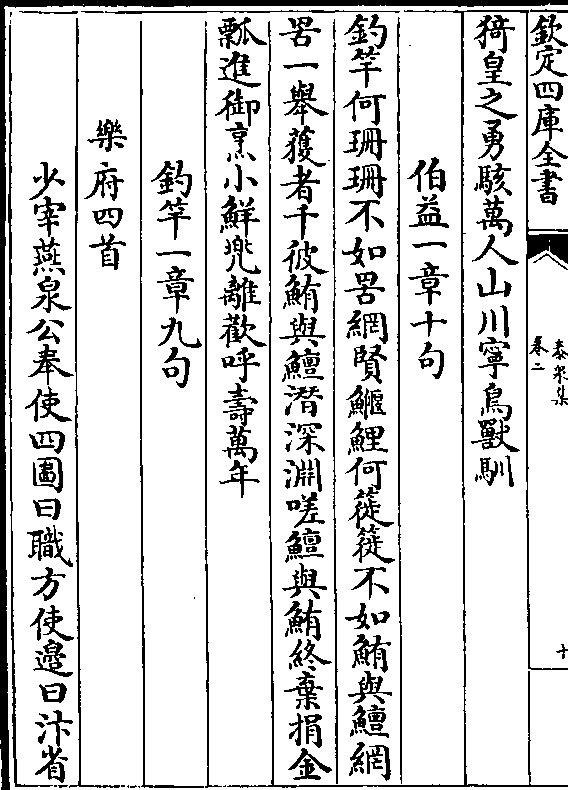 欽定四庫全書
泰泉集
卷二
十
猗皇之勇駭萬人山川寧鳥獸馴
伯益一章十句
釣竿何珊珊不如罟網賢鰋鯉何簁簁不如鮪與鱣網
罟一舉獲者千彼鮪與鱣潛深淵嗟鱣與鮪終棄捐金
瓢進御烹小鮮兠離歡呼壽萬年
釣竿一章九句
樂府四首
少宰燕泉公奉使四圖曰職方使邊曰汴省